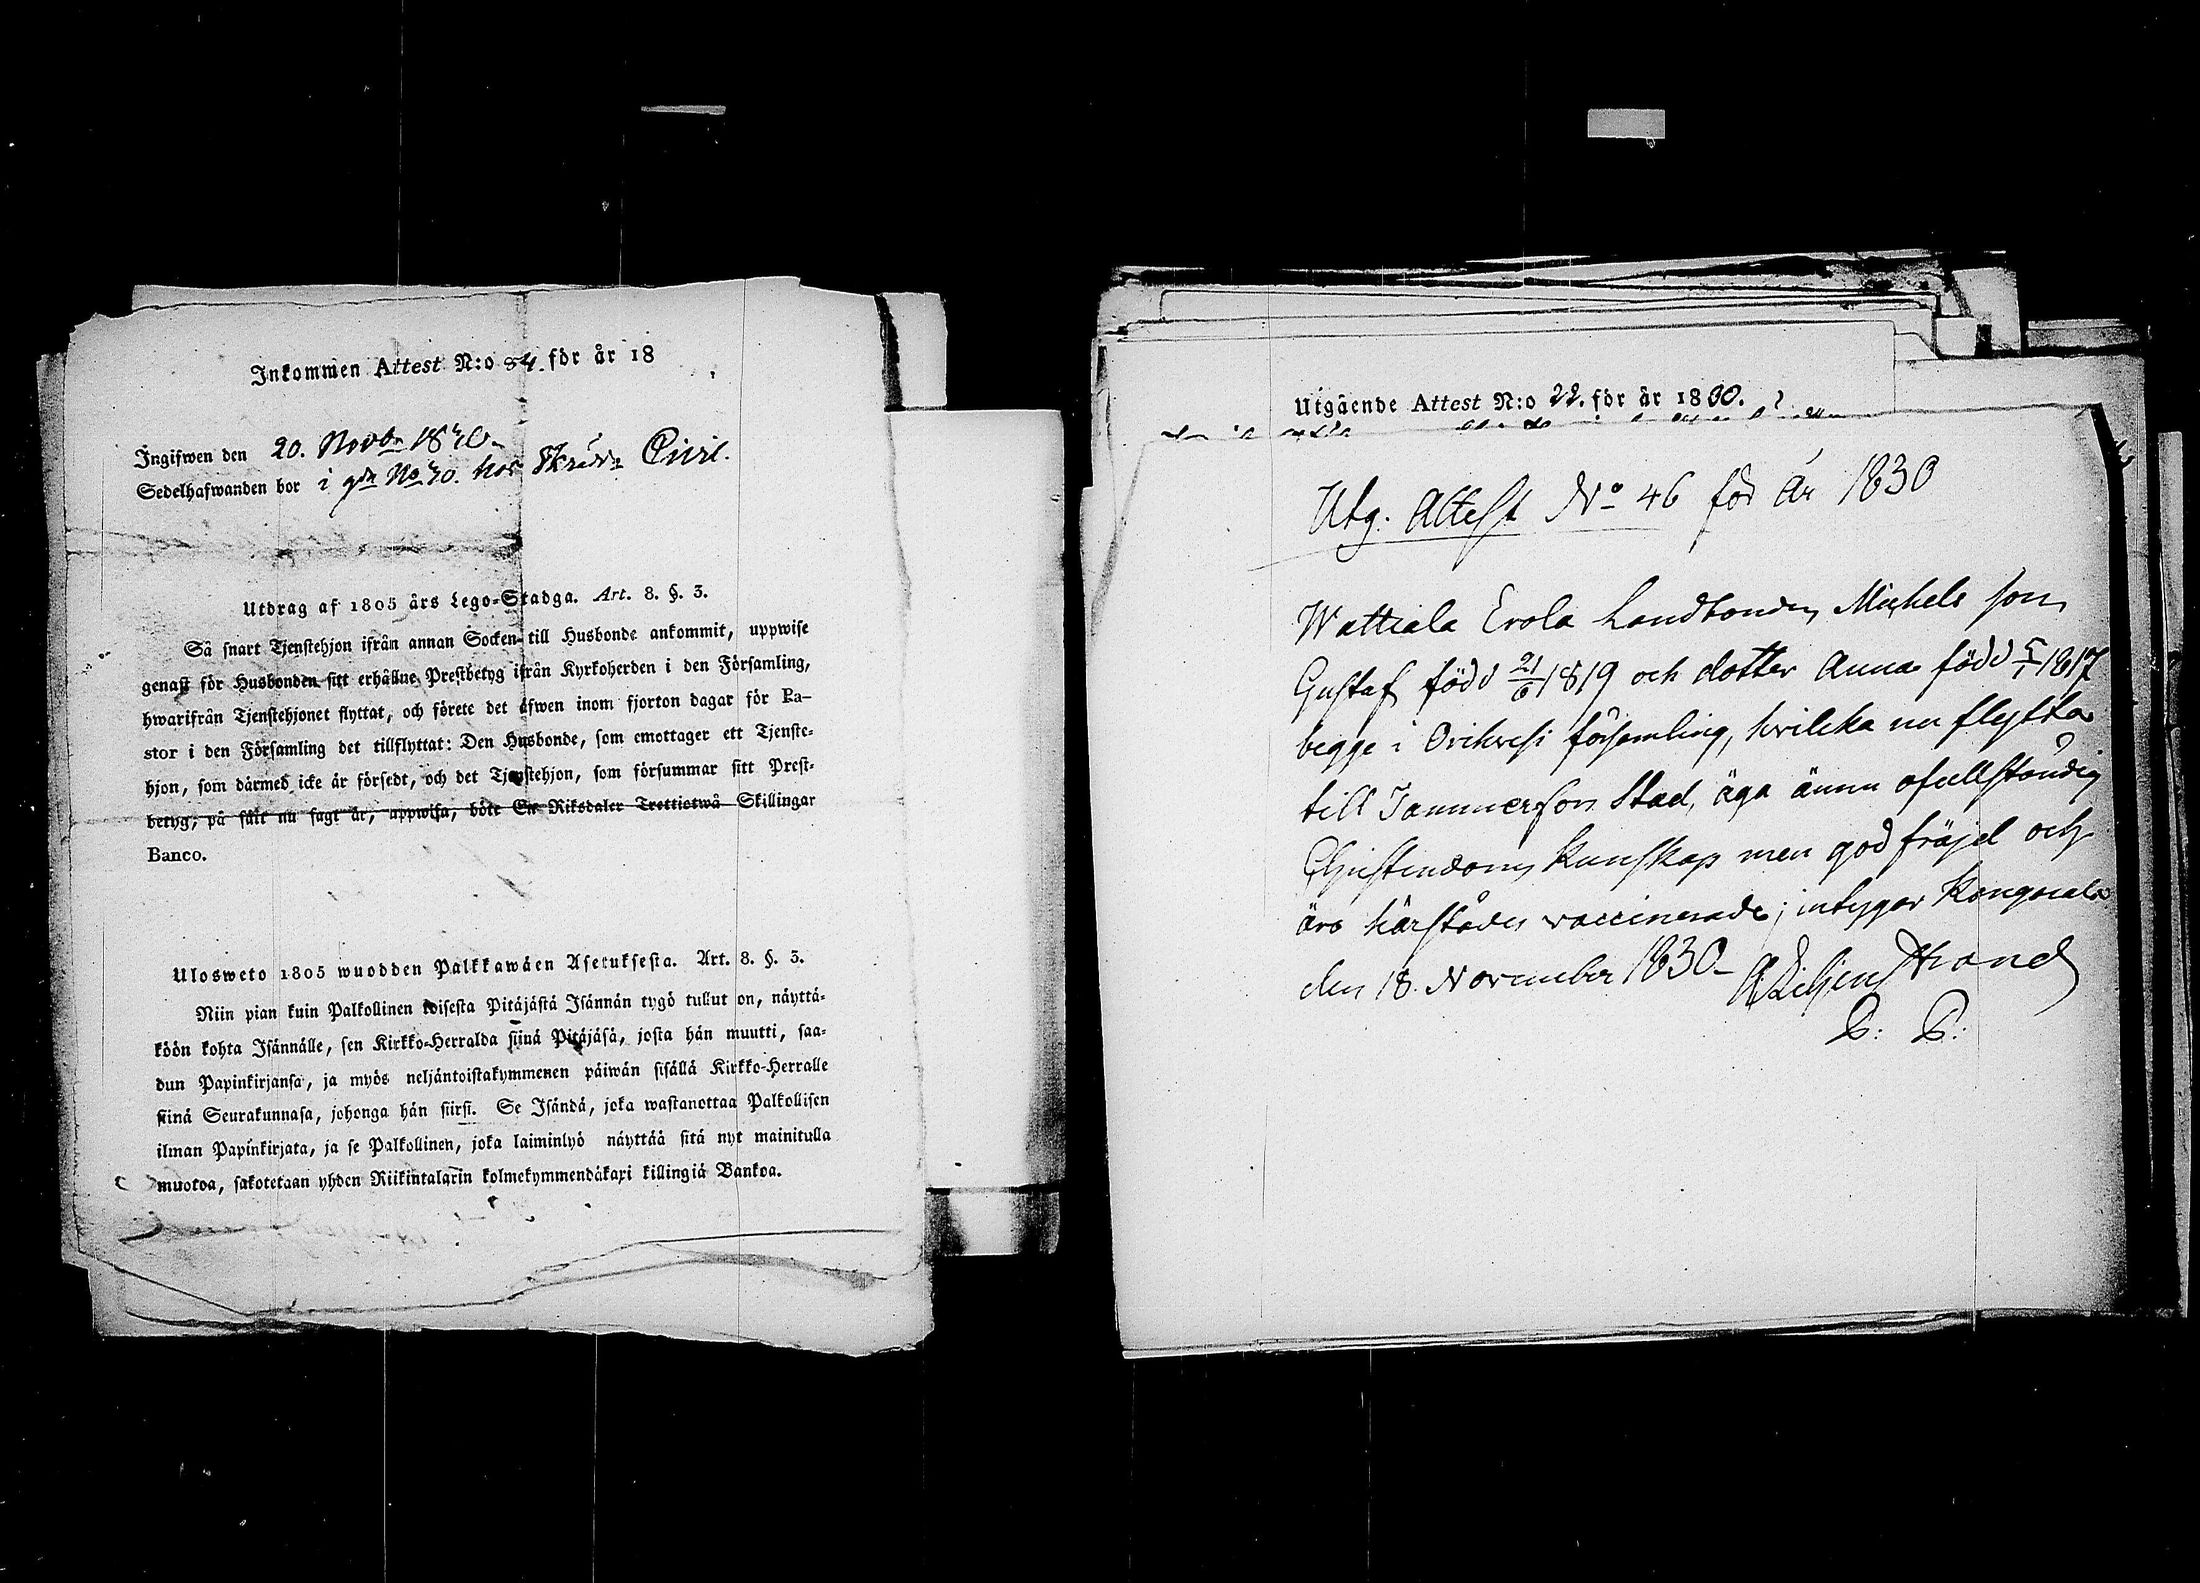 Inkommen Attest N:o 84. för år 18
Ingifwen den 20. Novbr 1830.
Sedelhafwanden bor i gdn No 30. hos Skrädd. Qvist.
Utdrag af 1805 års Lego-Stadga. Art. 8. §. 3.
Så snart Tjenstehjon ifrån annan Socken till Husbonde ankommit, uppwise
genast för Husbonden sitt erhållne Prestbetyg ifrån Kyrkoherden i den Församling,
hwarifrån Tjenstehjonet flyttat, och förete det äfwen inom fjorton dagar för Pa-
stor i den Församling det tillflyttat: Den Husbonde, som emottager ett Tjenste-
hjon, som därmed icke är försedt, och det Tjenstehjon, som försummar sitt Prest-
betyg, på sätt nu sagt är, uppwisa, böte En Riksdaler Trettiotwå Skillingar
Banco.
Ulosweto 1805 wuodden Palkkawäen Asetuksesta. Art. 8. §. 3.
Niin pian kuin Palkollinen toisesta Pitäjästä Isännän tygö tullut on, näyttä-
köön kohta Isännälle, sen Kirkko-Herralda siinä Pitäjäsä, josta hän muutti, saa-
dun Papinkirjansa, ja myös neljäntoistakymmenen päiwän sisällä Kirkko-Herralle
siinä Seurakunnasa, johonga hän siirsi. Se Isändä, joka wastanottaa Palkollisen
ilman Papinkirjata, ja se Palkollinen, joka laiminlyö näyttää sitä nyt mainitulla
muotoa, sakotetaan yhden Riikintalarin kolmekymmendäkaxi killingiä Bankoa.
Utgående Attest N:o 22. för år 1830.
Utg. Attest No 46 för år 1830
Wattiala Erola Landbonden Michels son
Gustaf född 21/6 1819 och dotter Anna född 5/1 1817
begge i Orihvesi församling, hvilcka nu flytta
till Tammerfors Stad, äga ännu ofullständig
Christendoms kunskap men god fräjd och
äro härstädes vaccinerade; intygar Kangasala
den 18. November 1830. A Liljenstrand
P: P: